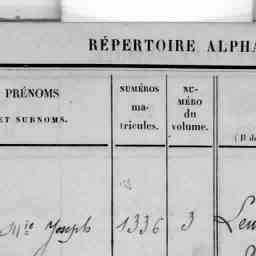 RÉPERTOIRE ALPHA
PRÉNOMS
ET SURNOMS.
NUMÉROS
ma-
tricules.
NU-
MÉRO
du
volume.
Joseph 1336 3